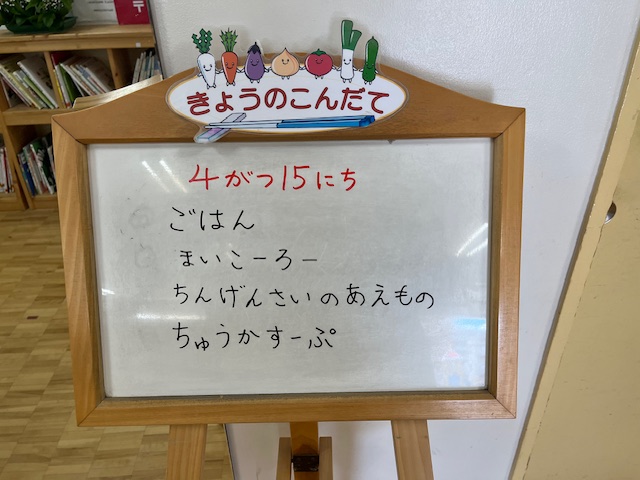 きょうのこんだて
4がつ15にち
ごはん
まいこーろー
ちんげんさいのあえもの
ちゅうかすーぷ